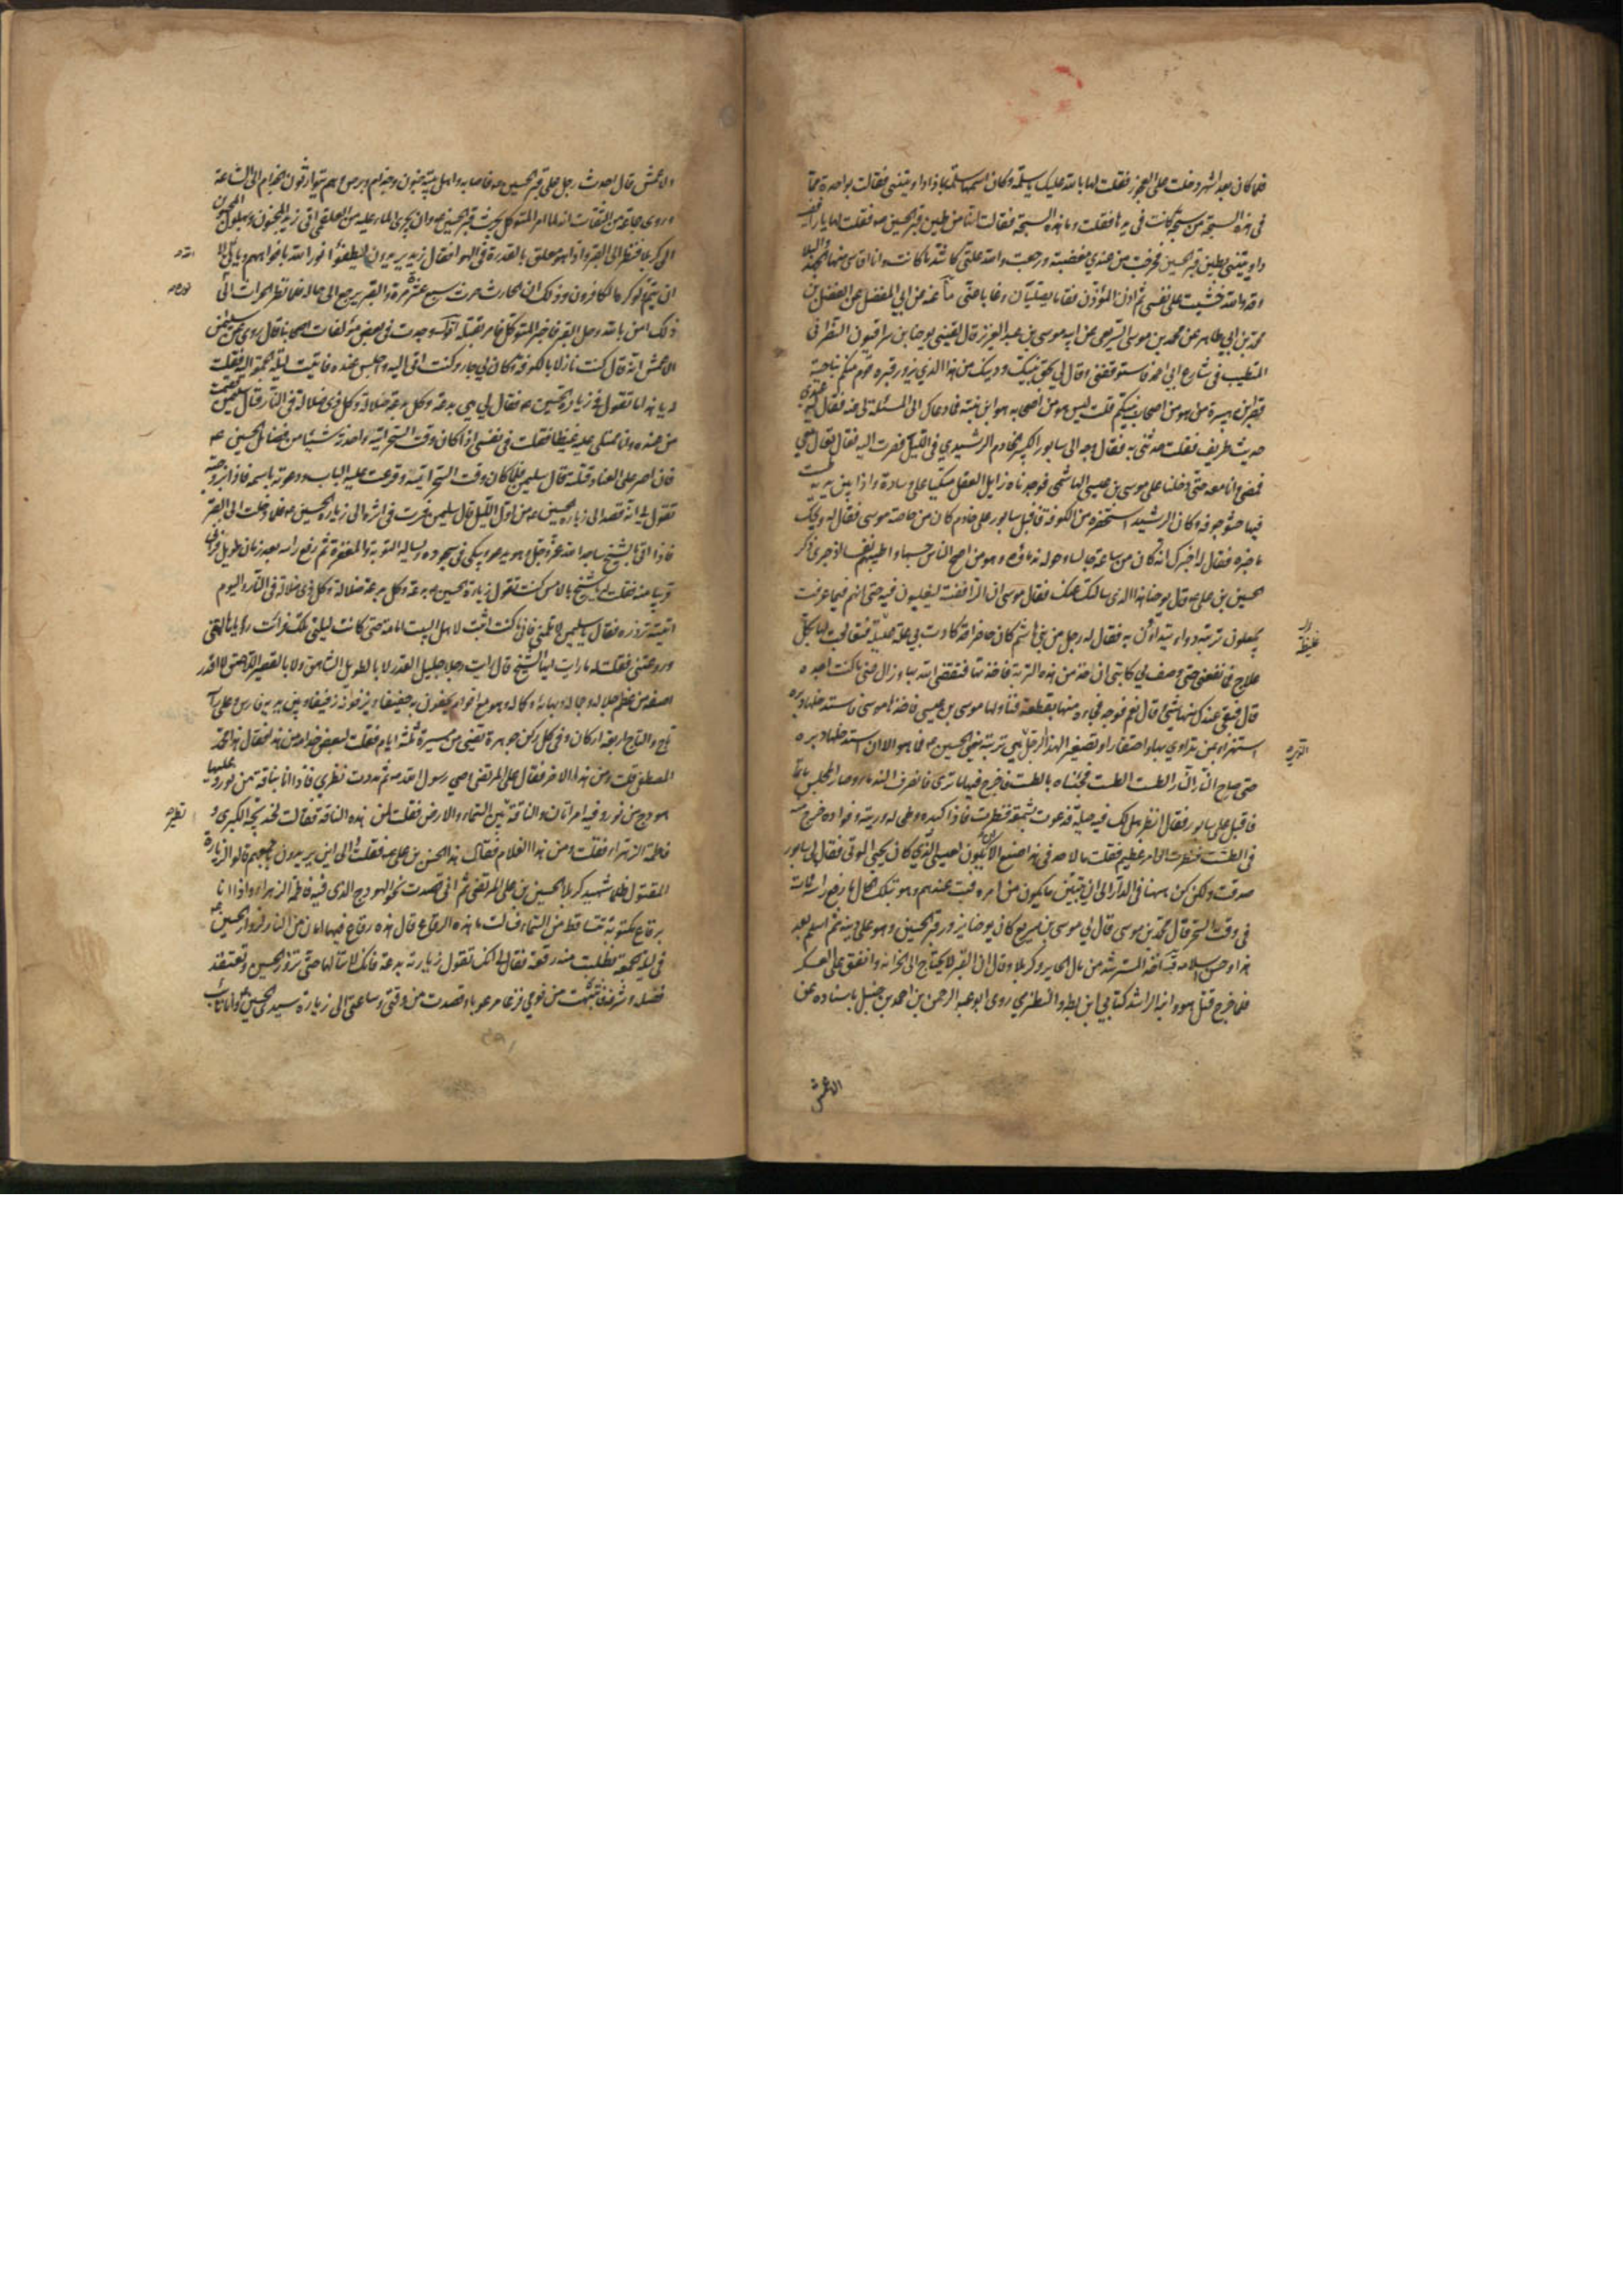 فلما كان بعد اشهر دخلت على العجوز فقلت لها بالله عليك يا سلمة وكان اسمها سلمة بماذا داويتنى فقالت بواحدة مما
فى هذه السبحة من سبحة كانت فى يدها فقلت وما هذه السبحة فقالت انها من طين قبر الحسين فقلت لها يا رافضية
داويتنى بطين قبر الحسين فخرجت من عندى مغضبة ورجعت والله علتى كاشد ما كانت وانا اقاسى منها الجهد والبلاء
وقد والله خشيت على نفسى ثم اذن المؤذن فقاما يصليان وغابا عنى
محمد بن ابى طاهر عن محمد بن موسى السريعى عن ابيه موسى بن عبد العزيز قال لقينى يوحنا بن سراقيون النصرانى
المتطبب فى شارع ابى احمد فاستوقفنى وقال لى بحق نبيك ودينك من هذا الذى يزور قبره قوم منكم بناحية
قصر ابن هبيرة من هو من اصحاب نبيكم قلت ليس هو من اصحابه هو ابن بنته فما دعاك الى المسئلة لى عنه فقال له عندى
حديث طريف فقلت حدثنى به فقال وجه الى سابور الكبير الخادم الرشيدى فى الليل فصرت اليه فقال تعال معى
فمضى وانا معه حتى دخلنا على موسى بن عيسى الهاشمى فوجدناه زايل العقل متكيا على وسادة واذا بين يديه طست
فيها حشو جوفه وكان الرشيد استحضره من الكوفة فاقبل سابور على خادم كان من خاصة موسى فقال له ويحك
ما خبره فقال له اخبرك انه كان من ساعة جالسا وحوله ندماؤه وهو من اصح الناس جسما واطيبهم نفسا اذ جرى ذكر
الحسين بن على قال يوحنا هذا الذى سالتك عنه فقال موسى ان الرافضة ليغلون فيه حتى انهم فيما عرفت
يجعلون تربته دواء يتداوون به فقال له رجل من بنى هاشم كان حاضرا قد كانت بى علة غليظة فتعالجت لها بكل
علاج فما نفعنى حتى وصف لى كاتبى ان اخذ من هذه التربة فاخذتها فنفعنى الله بها وزال عنى ما كنت اجده
قال فبقى عندك منها شىء قال نعم فوجه فجاءه منها بقطعة فناولها موسى بن عيسى فاخذها موسى فاستدخلها دبره
استهزاء بمن تداوى بها واحتقارا وتصغيرا لهذا الرجل الذى هى تربته يعنى الحسين فما هو الا ان استدخلها دبره
حتى صاح النار النار الطست الطست فجئناه بالطست فاخرج فيها ما ترى فانصرف الندماء وصار المجلس ماتما
فاقبل على سابور فقال انظر هل لك فيه حيلة فدعوت بشمعة فنظرت فاذا كبده وطحاله وريته وفواده خرج منه
فى الطست فنظرت الى امر عظيم فقلت ما لاحد فى هذا صنع الا ان يكون لعيسى الذى كان يحيى الموتى فقال لى سابور
صدقت ولكن كن ههنا فى الدار الى ان يتبين ما يكون من امره فبت عندهم وهو بتلك الحال ما رفع راسه فمات
فى وقت السحر قال محمد بن موسى قال لى موسى بن سريع كان يوحنا يزور قبر الحسين وهو على دينه ثم اسلم بعد
هذا وحسن اسلامه اخذ المسترشد من مال الحاير وكربلا وقال ان القبر لا يحتاج الى الخزانة وانفق على العسكر
فلما خرج قتل هو وابنه الراشد كتابى ابن بطة والنطنزى روى ابو عبد الرحمن بن احمد بن حنبل باسناده عن
الاعمش
غليظة
دبره
الاعمش قال احدث رجل على قبر الحسين فاصابه واهل بيته جنون وجذام وبرص وهم يتوارثون الجذام الى الساعة
وروى جماعة من الثقات انه لما امر المتوكل بحرث قبر الحسين وان يجرى الماء عليه من العلقمى اتى زيد المجنون وبهلول المجنون
الى كربلا فنظرا الى القبر واذا هو معلق بالقدرة فى الهوا فقال زيد يريدون ليطفئوا نور الله بافواههم ويابى الله الا
ان يتم نوره ولو كره الكافرون وذلك ان الحارث حرث سبع عشرة مرة والقبر يرجع الى حاله فلما نظر الحراث الى
ذلك امن بالله وحل البقر فاخبر المتوكل فامر بقتله ووجدت فى بعض مؤلفات اصحابنا قال روى عن سليمن
الاعمش انه قال كنت نازلا بالكوفة وكان لى جار وكنت اتى اليه واجلس عنده فاتيت ليلة الجمعة اليه فقلت
له يا هذا ما تقول فى زيارة الحسين فقال لى هى بدعة وكل بدعة ضلالة وكل ذى ضلالة فى النار قال سليمن فقمت
من عنده وانا ممتلئ عليه غيظا فقلت فى نفسى اذا كان وقت السحر اتيه واحدثه شيئا من فضائل الحسين
فان اصر على العناد قتلته قال سليمن فلما كان وقت السحر اتيته وقرعت عليه الباب ودعوته باسمه فاذا بزوجته
تقول لى انه قصد الى زيارة الحسين من اول الليل قال سليمن فسرت فى اثره الى زيارة الحسين فلما دخلت الى القبر
فاذا انا بالشيخ ساجد لله عز وجل وهو يدعو ويبكى فى سجوده ويساله التوبة والمغفرة ثم رفع راسه بعد زمان طويل فرانى
قريبا منه فقلت له يا شيخ بالامس كنت تقول زيارة الحسين بدعة وكل بدعة ضلالة وكل ذى ضلالة فى النار واليوم
اتيت تزوره فقال يا سليمن لا تلمنى فانى ما كنت اثبت لاهل البيت امامة حتى كانت ليلتى تلك فرايت رؤيا هالتنى
وروعتنى فقلت له ما رايت ايها الشيخ قال رايت رجلا جليل القدر لا بالطويل الشاهق ولا بالقصير اللاصق لا اقدر
اصفه من عظم جلاله وجماله وبهائه وكماله وهو مع اقوام يحفون به حفيفا ويزفونه زفيفا وبين يديه فارس وعلى راسه
تاج وللتاج اربعة اركان وفى كل ركن جوهرة تضىء من مسيرة ثلثة ايام فقلت لبعض خدامه من هذا فقال هذا محمد
المصطفى قلت ومن هذا الاخر فقال على المرتضى وصى رسول الله ثم مددت نظرى فاذا انا بناقة من نور وعليها
هودج من نور وفيه امراتان والناقة تطير بين السماء والارض فقلت لمن هذه الناقة فقالت لخديجة الكبرى و
فاطمة الزهراء فقلت ومن هذا الغلام فقال هذا الحسن بن على فقلت والى اين يريدون باجمعهم قالوا لزيارة
المقتول ظلما شهيد كربلا الحسين بن على المرتضى ثم انى قصدت نحو الهودج الذى فيه فاطمة الزهراء واذا انا
برقاع مكتوبة تتساقط من السماء فسالت ما هذه الرقاع قال هذه رقاع فيها امان من النار لزوار الحسين
فى ليلة الجمعة فطلبت منه رقعة فقال لى انك تقول زيارته بدعة فانك لا تنالها حتى تزور الحسين وتعتقد
فضله وشرفه فانتبهت من نومى فزعا مرعوبا وقصدت من وقتى وساعتى الى زيارة سيدى الحسين وانا تائب
نوره
تطير